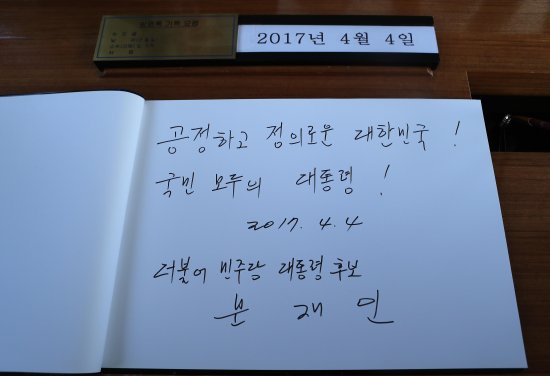 방명록 기록 요령
2017년 4월 4일
공정하고 정의로운 대한민국 !
국민 모두의 대통령 !
2017. 4. 4
더불어 민주당 대통령 후보
문 재 인